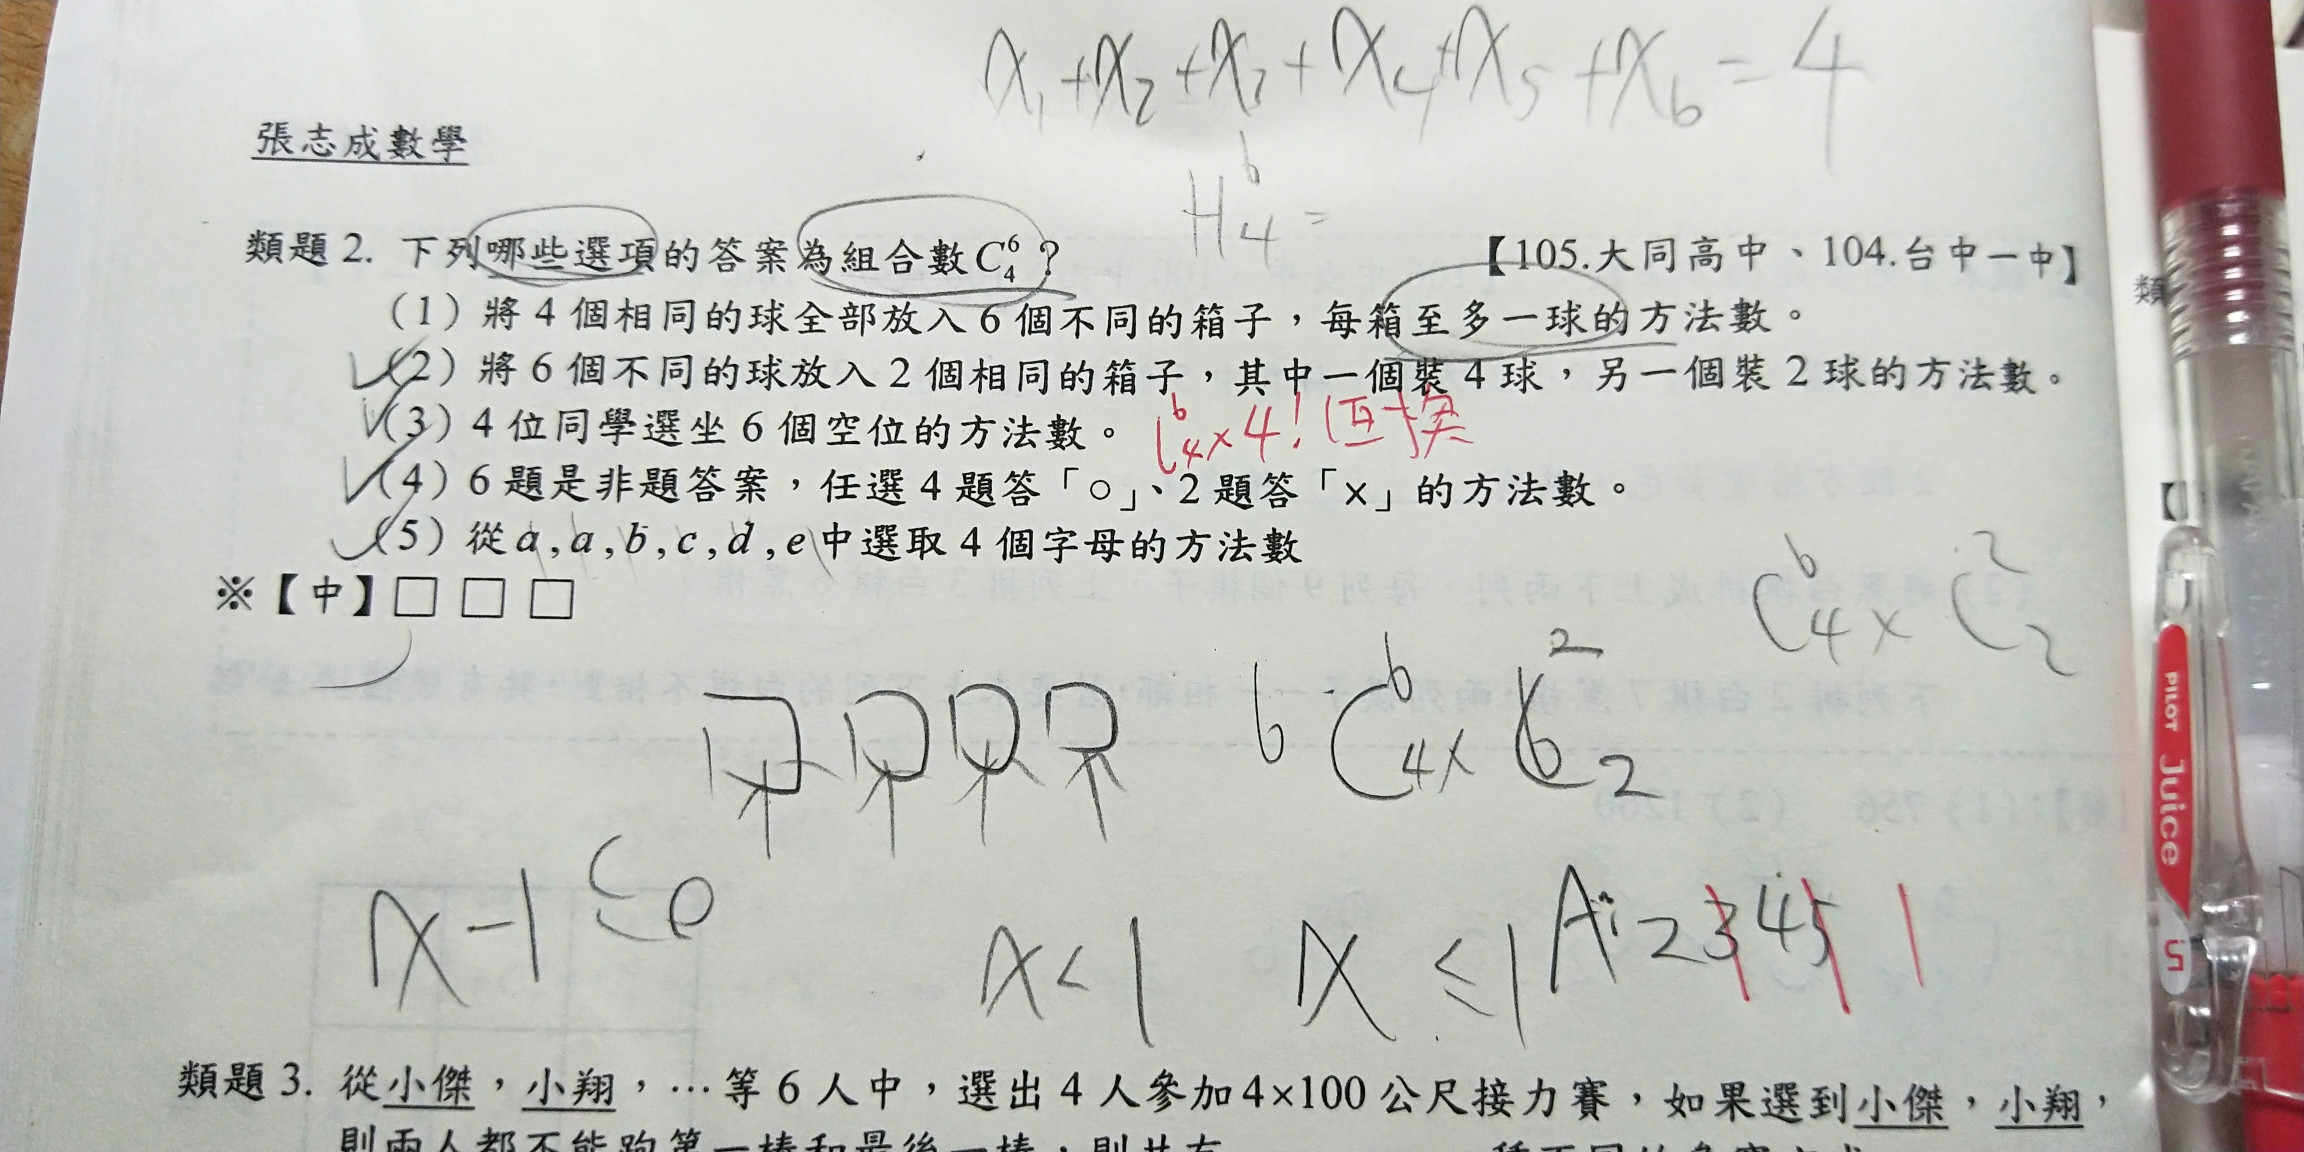 x₁+x₂+x₃+x₄+x₅+x₆=4
張志成數學
H⁶₄=
類題 2. 下列哪些選項的答案為組合數C⁶₄？ 【105.大同高中、104.台中一中】
(1) 將 4 個相同的球全部放入 6 個不同的箱子，每箱至多一球的方法數。
(2) 將 6 個不同的球放入 2 個相同的箱子，其中一個裝 4 球，另一個裝 2 球的方法數。
(3) 4 位同學選坐 6 個空位的方法數。 C⁶₄×4! 互換
(4) 6 題是非題答案，任選 4 題答「○」、2 題答「×」的方法數。
(5) 從 a , a , b , c , d , e 中選取 4 個字母的方法數
※【中】□ □ □
C⁶₄× C²₂
6 C⁶₄×
x-1≤0
x<1 x≤1 A: 2345
PILOT Juice 5
類題 3. 從小傑，小翔，…等 6 人中，選出 4 人參加 4×100 公尺接力賽，如果選到小傑，小翔，
則兩人都不能跑第一棒和最後一棒，則共有
類